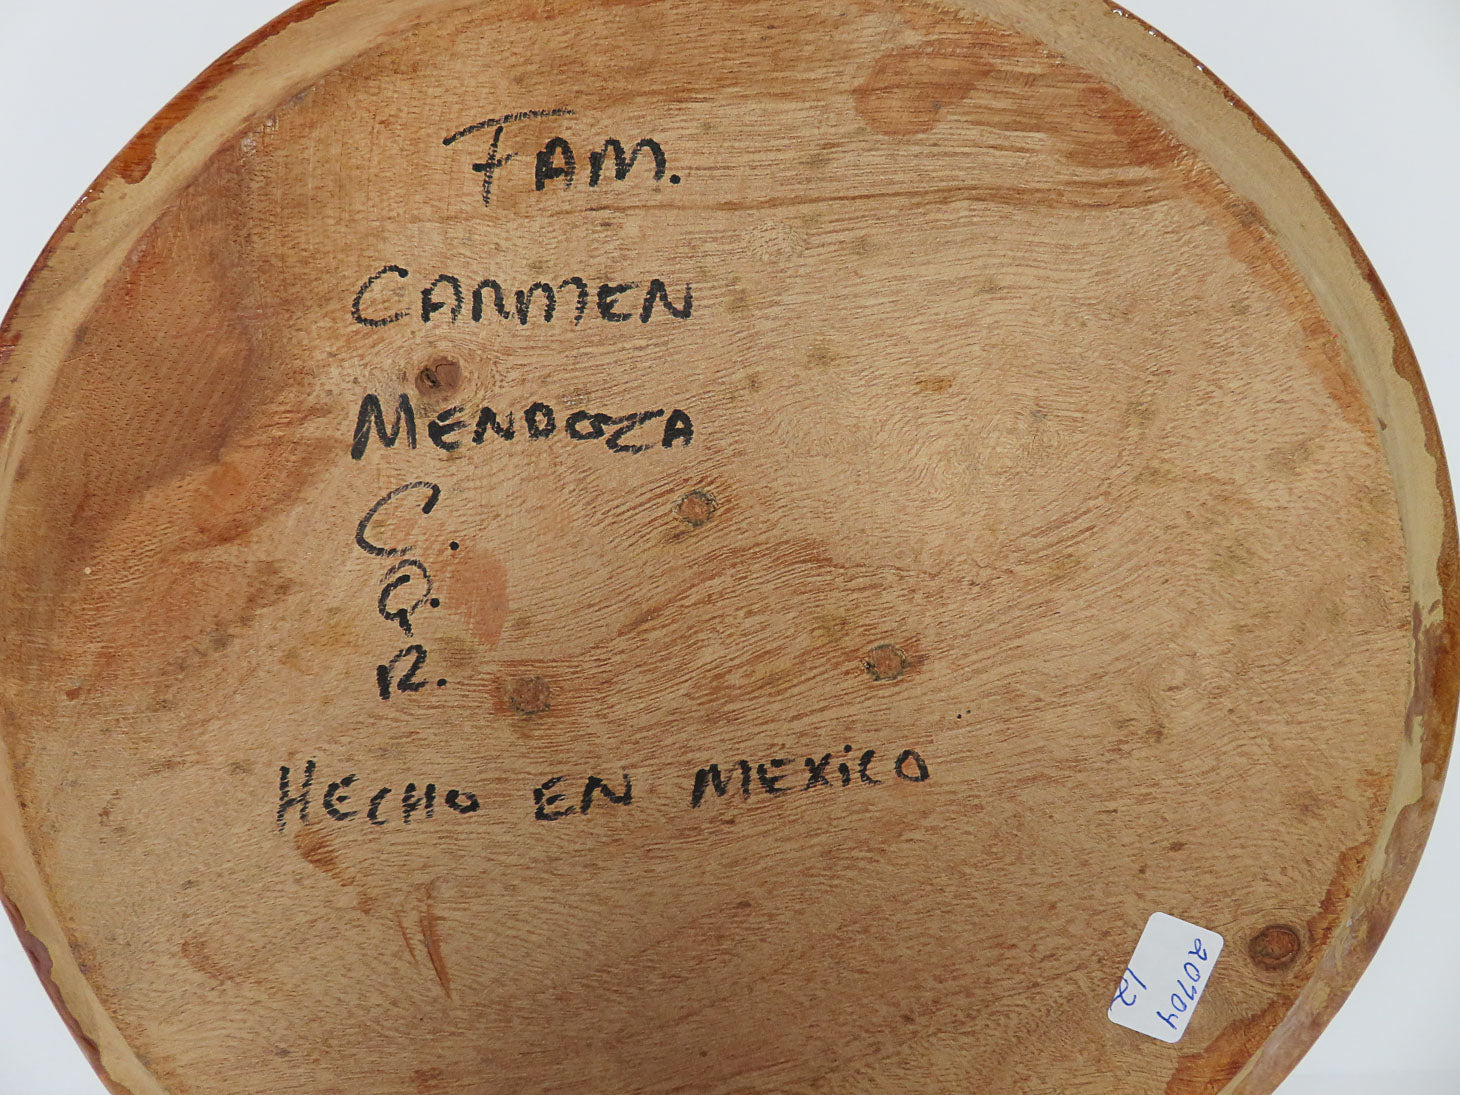 FAM.
CARMEN
MENDOZA
C.
Q.
R.
HECHO EN MEXiCO
20704
12